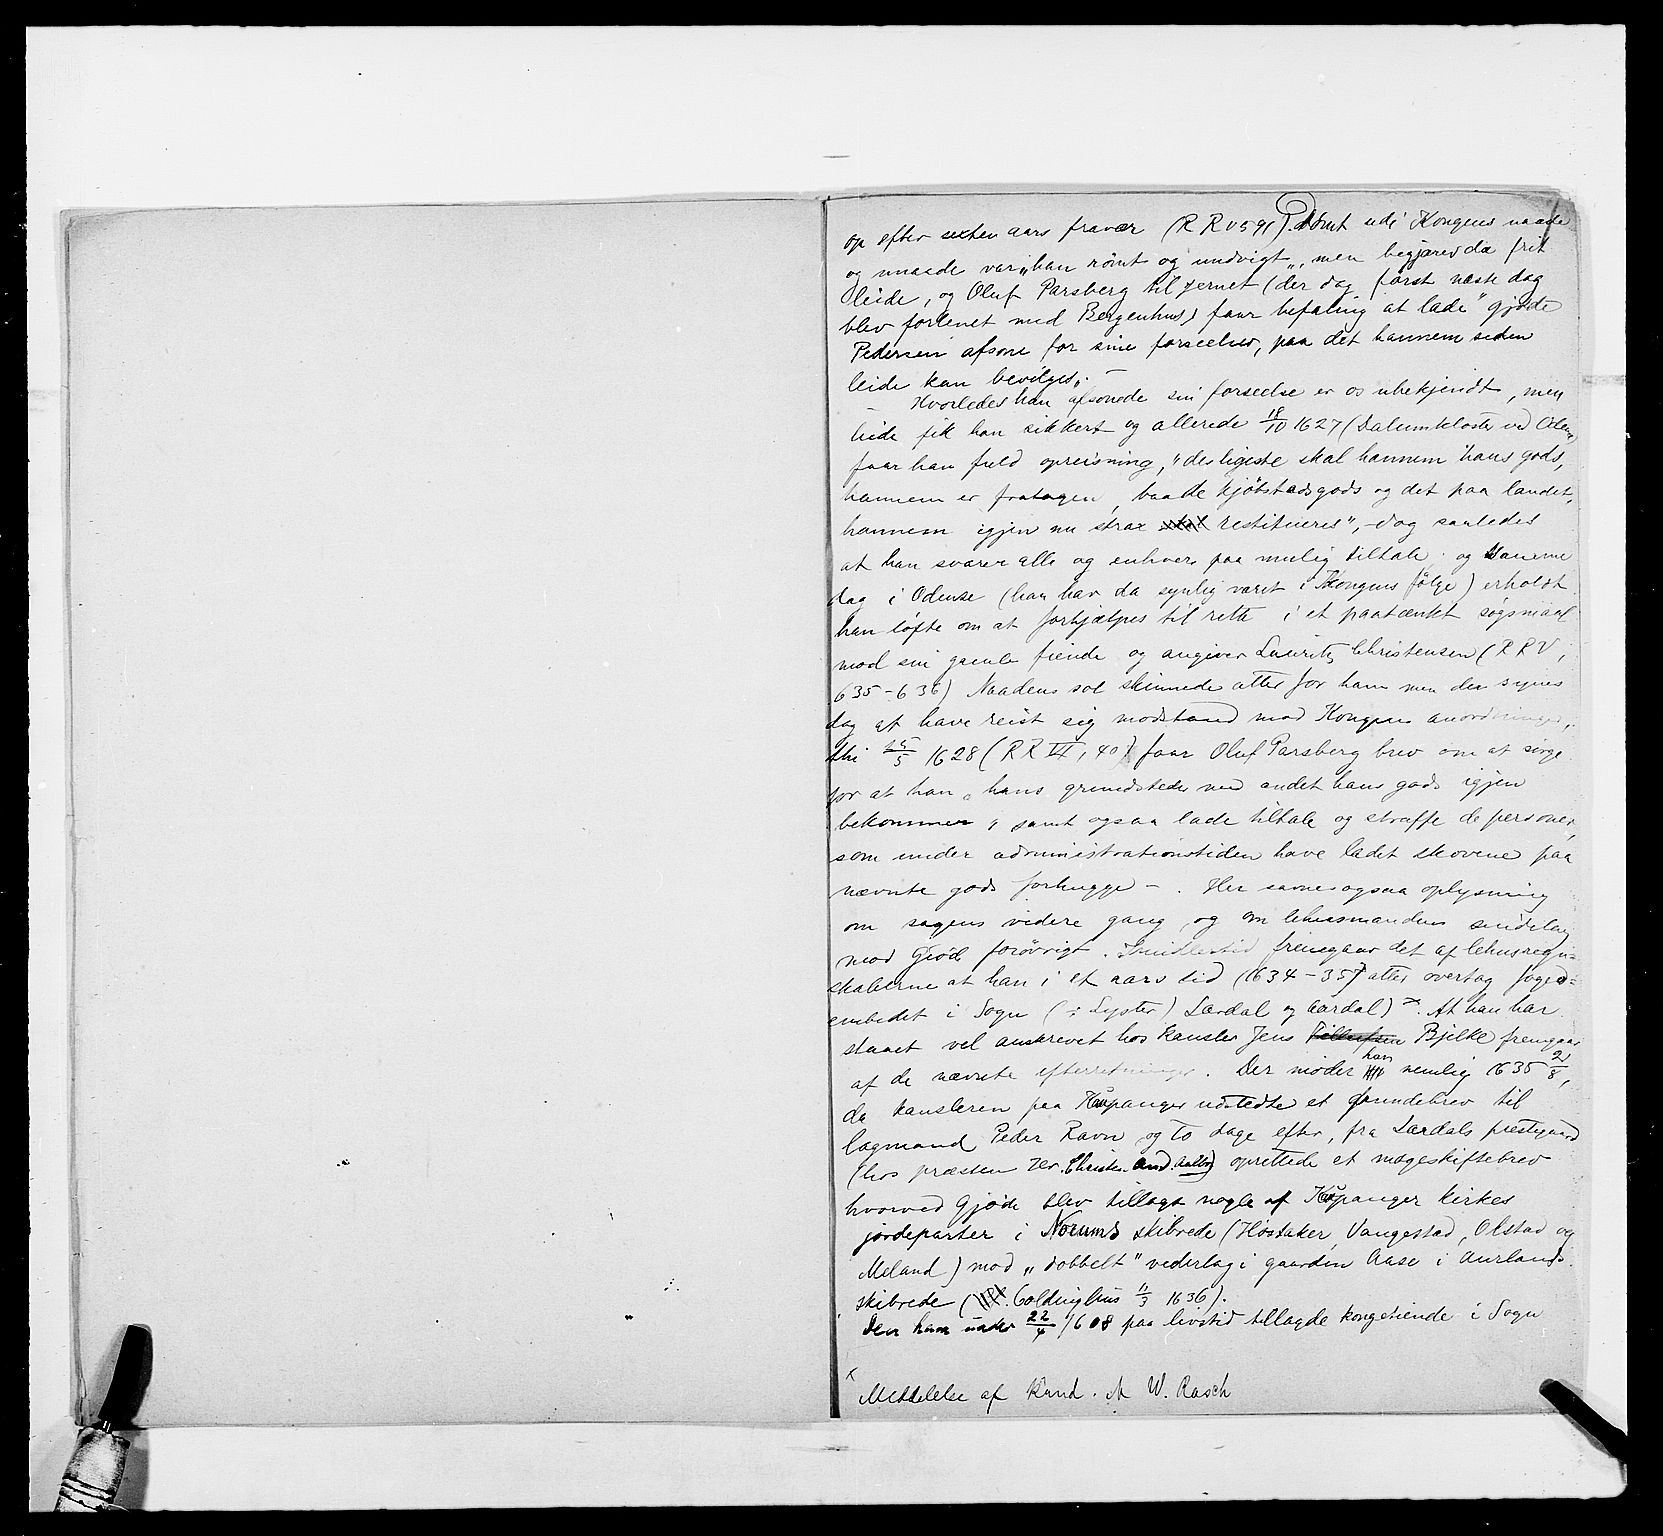 op efter sexten aars fravær (R R V 591). Dømt udi Kongens naade
og unaade var „han rømt og undvigt„, men begjærer da frit
leide, og Oluf Parsberg til Jernet (der dog først næste dag
blev forlenet med Bergenhus) faar befaling at lade "Gjøde
Pedersen afsone for sine forseelser, paa det hannem siden
leide kan bevilges„. —
Hvorledes han afsonede sin forseelse er os ubekjendt, men
leide fik han sikkert og allerede 18/10 1627 (Dalumkloster ved Odense
faar han fuld opreisning, "desligeste skal hannem hans gods,
hannem er fratagen, baade kjøbstadsgods og det paa landet,
hannem igjen nu strax restitueres", – dog saaledes
at han svarer alle og enhver paa mulig tiltale; og samme
dag i Odense (han har da synlig været i Kongens følge) erholdt
han løfte om at forhjælpes til rette i et paatænkt søgsmaal
mod sin gamle fiende og angiver Lauritz Christensen (R R V,
635-636) Naadens sol skinnede atter for ham men der synes
dog at have reist sig modstand mod Kongens anordninger,
thi 25/5 1628 (RR VI, 40) faar Oluf Parsberg brev om at sørge
for at han „hans grundsteder med andet hans gods igjen
bekommer„ samt ogsaa lade tiltale og straffe de personer,
som under administrationstiden have ladet skovene paa
nævnte gods forhugge –. Her savnes ogsaa oplysning
om sagens videre gang og om lehnsmandens sindelag
mod Gjøde forøvrigt. Imidlertid fremgaar det af lehnsregn-
skaberne at han i et aars tid (1634–35) atter overtog foged=
embedet i Sogn (: Lyster) Lærdal og Aardal) x. At han har
staaet vel anskrevet hos Kansler Jens Bjelke fremgaar
af de nævnte efterretninger. Der møder han nemlig 1635 2/8,
da kansleren paa Kaupanger udstedte et fundebrev til
lagmand Peder Ravn og to dage efter, fra Lærdals prestegaard
(hos præsten Hr. Christen And. Aalb) oprettede et mageskiftebrev
hvorved Gjøde blev tillagt nogle af Kaupanger kirkes
jordeparter i Norums skibrede (Høstaker, Vangestad, Olstad og
Meland) mod „dobbelt" vederlag i gaarden Aase i Aurlands
skibrede (Coldinghus 11/3 1636).
Den ham under 22/4 1608 paa livstid tillagde kongetiende i Sogn
x Meddelelse af Kand. A W. Rasch